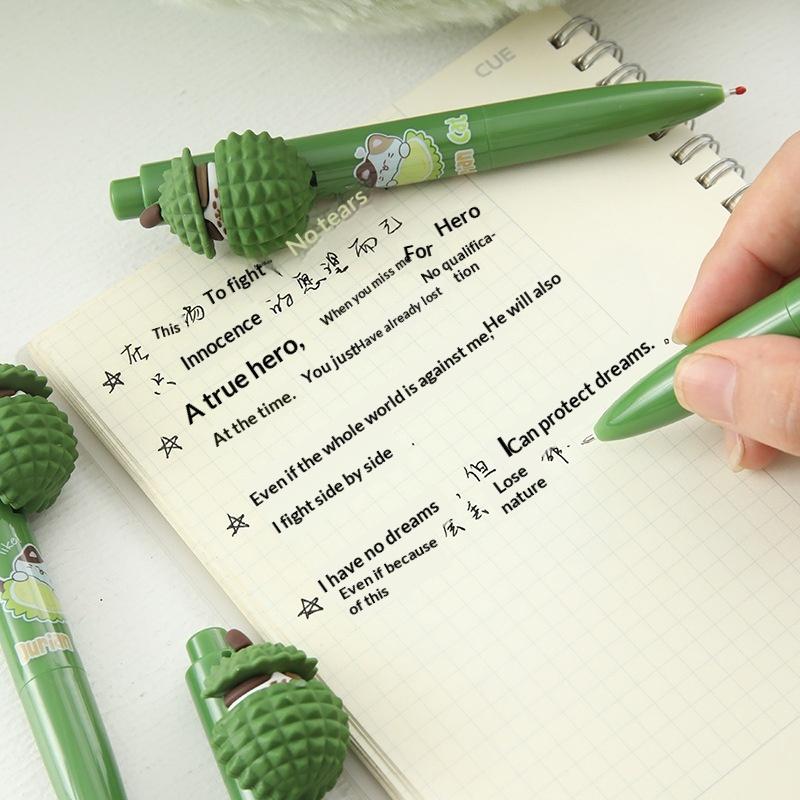 CUE
Cat
No tears
This 为 To fight 的愿望而已 For Hero
只 Innocence When you miss me No qualifica-
tion
A true hero,
At the time. You just Have already lost
Even if the whole world is against me, He will also
I fight side by side
I have no dreams ，但 I Can protect dreams. 。
Even if because Lose
of this nature
like
Durian